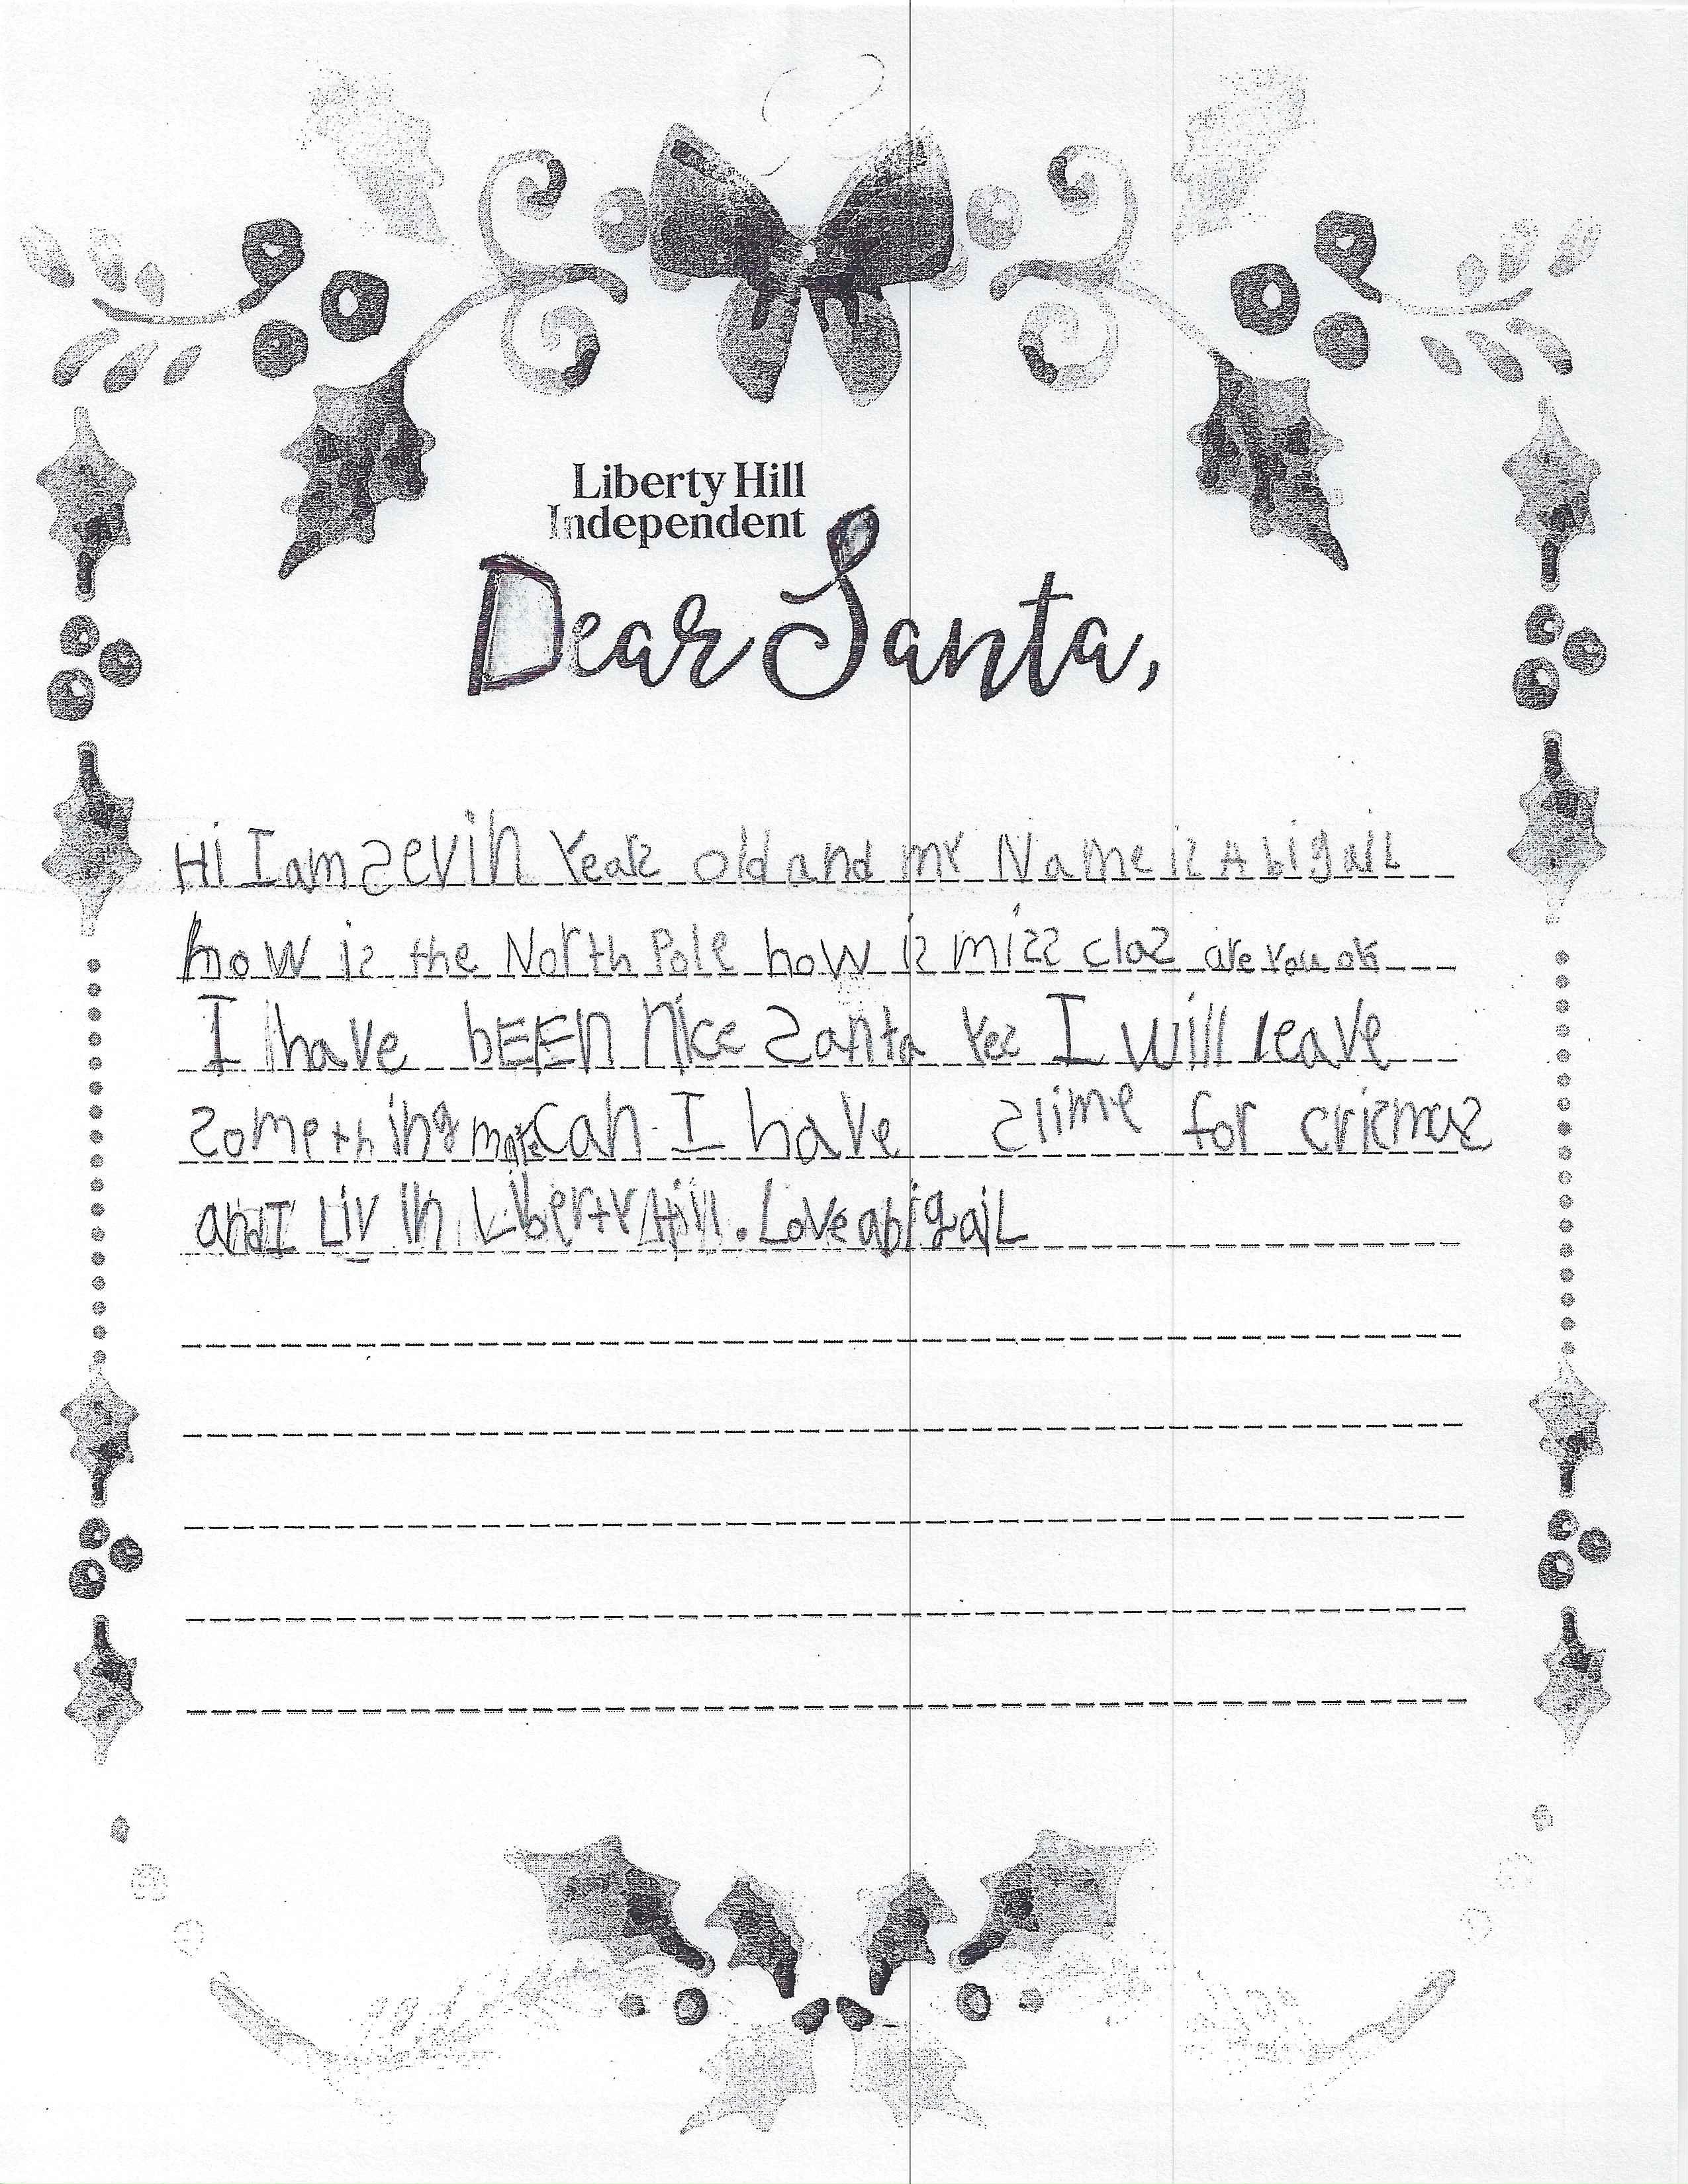 Liberty Hill
Independent
Dear Santa,
Hi I am sevin Years old and my Name is Abigail
how is the North Pole how is miss clos are you ok
I have bEEn nice Santa Yes I will leave
something can I have slime for crismas
and I Liv in Liberty Hill. Love abigaiL